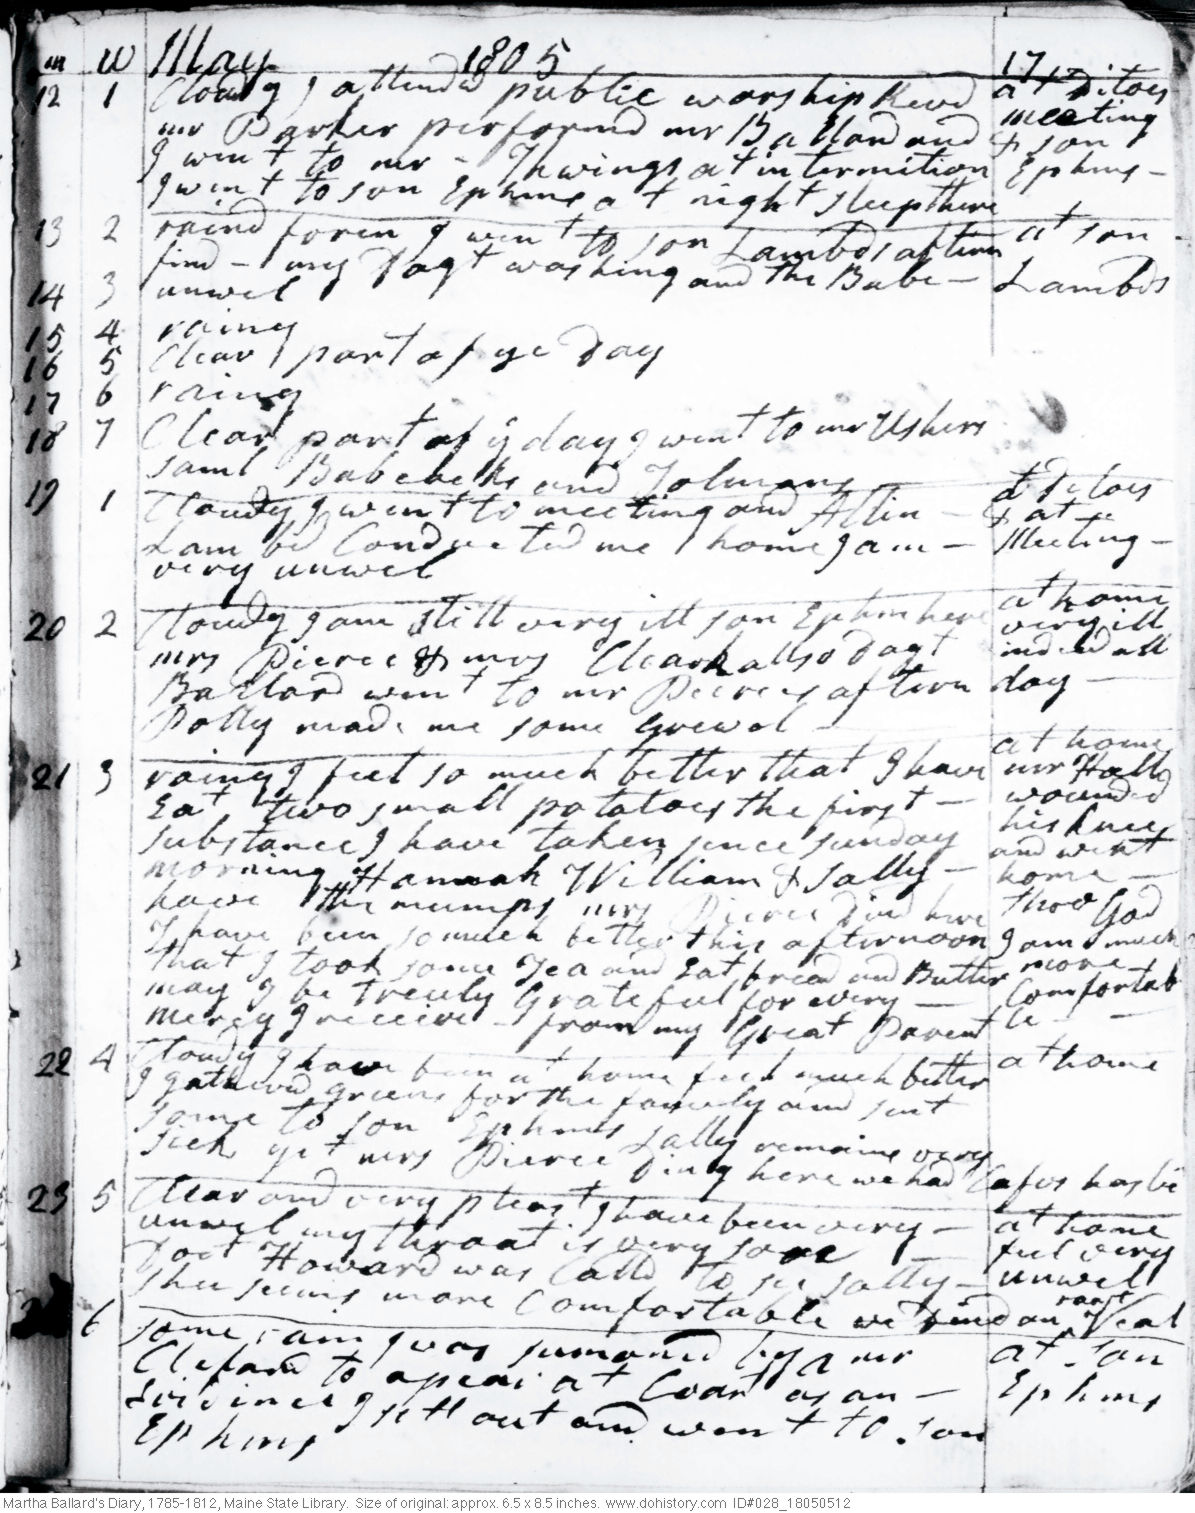 m W May 1805 17
12 1 Cloudy I attended public worship Revd at Ditoes
mr Parker performd mr Ballard and meeting
I went to mr Thwings at intermition & son
I went to son Ephms at night sleep there Ephms -
13 2 raind foren I went to son Lambds aftern at son
find - my Dagt washing and the Babe - Lambds
14 3 unwel
15 4 rainy
16 5 Clear part of ye Day
17 6 rainy
18 7 Clear part of ye day I went to mr Ushers
Saml Babcocks and Tolmans
19 1 Cloudy I went to meeting and Allin - at Ditoes
Lambd Conducted me home I am - & at
very unwel Meeting -
20 2 Cloudy I am still very ill son Ephm here at home
mrs Pierce & mrs Cleark allso Dagt very ill
Ballard went to mr Peirces aftern indeed all
Polly made me some grewel day -
21 3 rainy I feel so much better that I have at home
Eat two small potatoes the first - mr Hall
substance I have taken sence sunday wounded
morning Hannah William & Sally - his knee
have the mumps mrs Pierce Dind here and went
I have been so much better this afternoon home -
that I took some Tea and Eat bread and Butter throo God
may I be Treuly Grateful for every - I am much
mercy I receive - from my Great Parent more
Comfortab
le -
22 4 Cloudy I have been at home feel much better at home
I gatherd greens for the famely and sent
some to son Ephms Sally remains very
sick yet mrs Pierce Dind here we had Cafes has
23 5 Clear and very pleast I have been very - at home
unwel my throat is very sore feel very
Doct Howard was Calld to see Sally - unwel
shee seems more Comfortable we Dind on roast Veal
6 some rain I was sumoned by mr at son
Cleford to apear at Coart as an - Ephms
Evidence I sett out and went to son
Ephms
Martha Ballard's Diary, 1785-1812, Maine State Library. Size of original: approx. 6.5 x 8.5 inches. www.dohistory.com ID#028_18050512